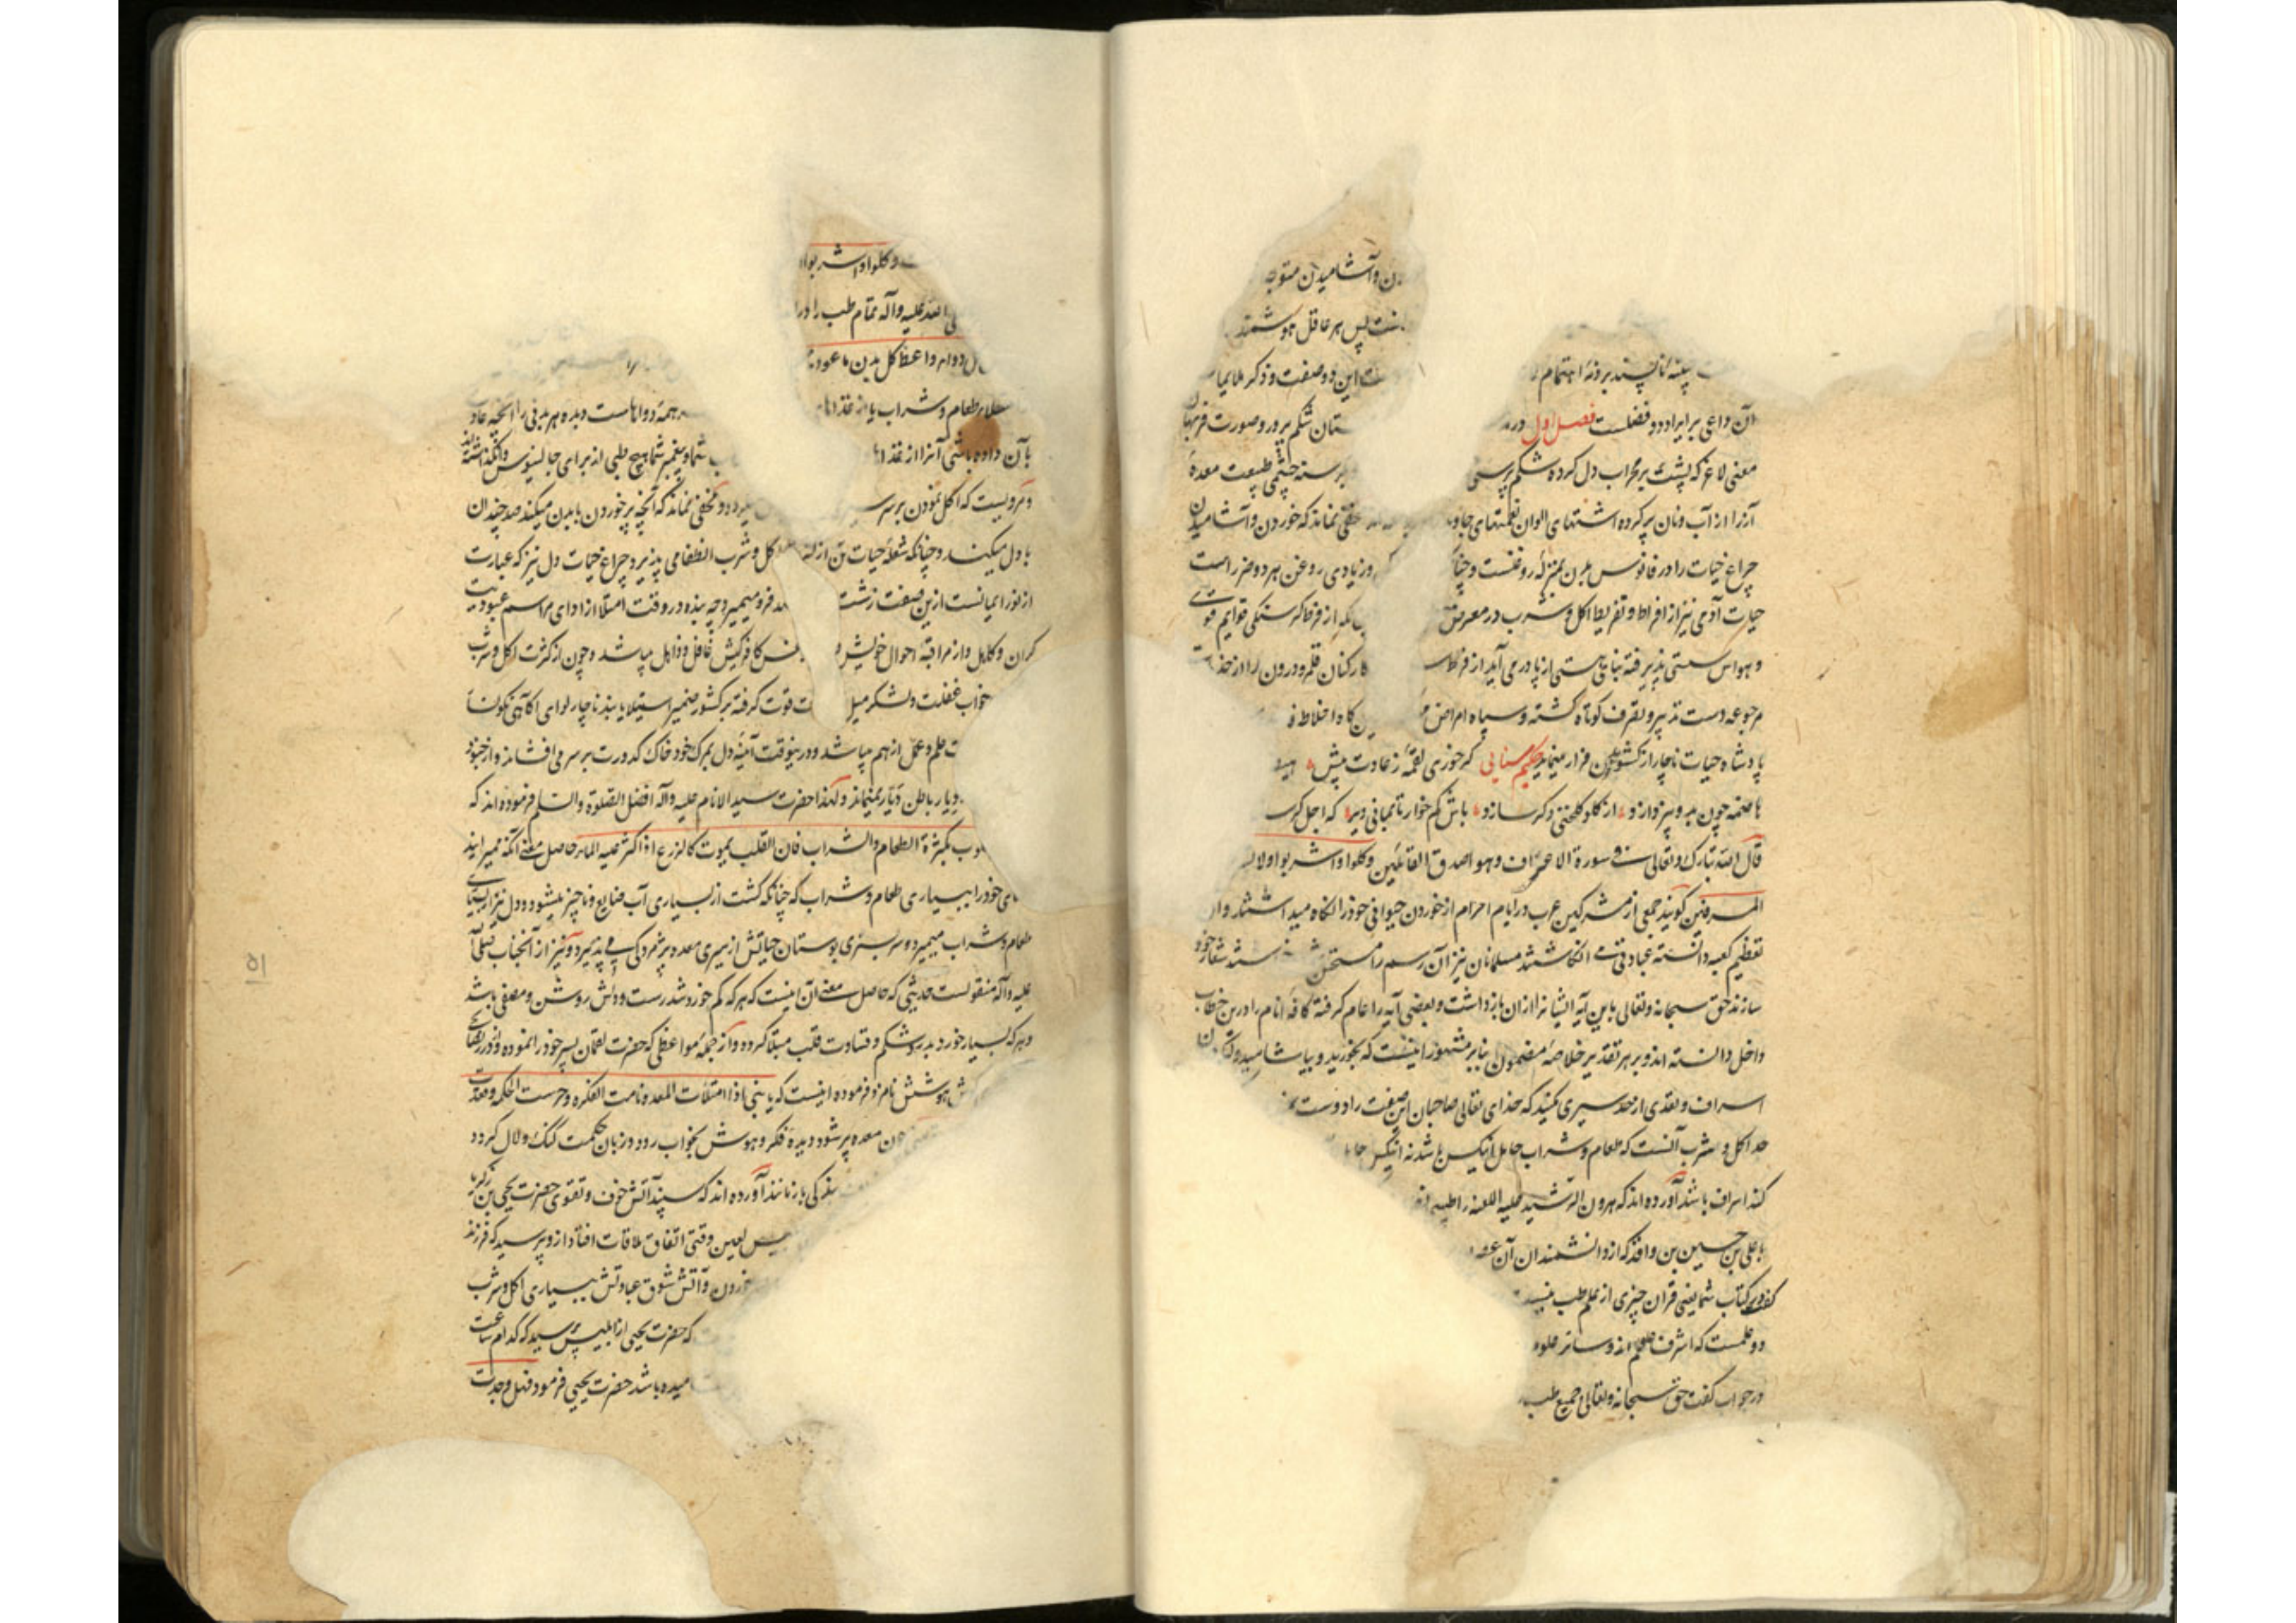 ن و آشامیدن متوجه
پس هر عاقل هوشمند
پیشه ناپسند بر ذمهٔ اهتمام
این دو صفت و ذکر ملایما
آن داعی برایراد دو فصلست فصل اول در
ستان شکم پرور و صورت فربهان
معنی لاغر که پشت بر محراب دل کرده شکم پرستی
گرسنه چشمی طبیعت معدهٔ
آز را از آب و نان پر کرده اشتهای الوان نعمتهای
مخفی نماند که خوردن و آشامیدن
چراغ حیات را در فانوس بدن بمنزلهٔ روغنست و چنا
و زیادی روغن هر دو ضرر است
حیات آدمی نیز از افراط و تفریط اکل و شرب در معرض
بلکه از فرط گرسنگی قوایم قوی
و حواس سستی پذیرفته بنای هستی از پا درمی آید از فرط
کارکنان قلمرو درون را از خد
مرجوعه دست تدبیر و تصرف کوتاه گشته و سپاه امراض
گاه اخلاط
پادشاه حیات ناچار از کشور بدن فرار مینماید حکیم سنایی گر خوری لقمهٔ ز عادت بیش
هاضمه چون بدو نپردازد از گلو گلخنی دگر سازد باش کم خوار تا بمانی دیر که اجل گرسنه
قال الله تبارک و تعالی فی سورة الاعراف وهو اصدق القائلین وکلوا واشربوا ولا
المسرفین گویند جمعی از مشرکین عرب در ایام احرام از خوردن حیوانی خود را نگاه میداشتند و از
تعظیم کعبه دانسته عبادتی می انگاشتند مسلمانان نیز آن رسم را مستحسن شعار خود
سازند حق سبحانه و تعالی باین آیه ایشانرا ازان بازداشت و بعضی آیه را عام گرفته کافهٔ انام را درین خطاب
داخل دانسته اند و بر هر تقدیر خلاصهٔ مضمون بنابر مشهور اینست که بخورید و بیاشامید و لیکن
اسراف و تعدی از حد سیری مکنید که خدای تعالی صاحبان این صفت را دوست
حد اکل و شرب آنست که طعام و شراب حامل انیکس باشد نه انیکس
کند اسراف باشد آورده اند که هرون الرشید علیه اللعنه را طبیبی
با علی بن حسین بن واقد که از دانشمندان آن
گفت در کتاب شما یعنی قرآن چیزی از علم طب نیست
دو علمست که اشرف علوم اند و سائر علوم
در جواب گفت حق سبحانه و تعالی جمیع طب
وکلوا واشربوا
الله علیه وآله تمام طب را در
دواء واعط کل بدن ما عود
همهٔ دواهاست و بده هر بدنی را آنچه عاد
ملایم طعام و شراب یا از غذا
بآن داده باشی آنرا از غذا
شما و پیغمبر شما هیچ طبی از برای جالینوس وانگذاشته اند
و مرویست که اکل نمودن بر سر
و مخفی نماند که آنچه پرخوردن با بدن میکند صد چندان
با دل میکند و چنانکه شعلهٔ حیات تن از
اکل و شرب انطفا می پذیرد چراغ حیات دل نیز که عبارت
از نور ایمانست ازین صفت زشت
فرو میمیرد چه بنده در وقت امتلا از ادای مراسم عبودیت
گران و کاهل و از مراقبهٔ احوال خویش و
نفس کافرکیش غافل و ذاهل میباشد و چون از کثرت اکل و شرب
خواب غفلت و لشکر میل
قوت گرفته بر کشور ضمیر استیلا یابند ناچار لوای آگاهی نگونسا
علم و عمل از هم میپاشد و درینوقت آیینهٔ دل بمرگ خود خاک کدورت بر سر می افشاند و از جنود
دیار باطن دیار نمیماند ولهذا حضرت سید الانام علیه وآله افضل الصلوة والسلام فرموده اند که
بکثرة الطعام والشراب فان القلب یموت کالزرع اذا اکثر علیه الماء حاصل معنی آنکه نمیرانید
های خود را ببسیاری طعام و شراب که چنانکه کشت از بسیاری آب ضایع و ناچیز میشود دل نیز از بسیاری
طعام و شراب میمیرد و سرسبزی بوستان حیاتش از سیری معده پژمردگی می پذیرد و نیز از آنجناب صلی الله
علیه وآله منقولست حدیثی که حاصل معنی آن اینست که هر که کم خورد تندرست و دلش روشن و مصفی باشد
و هر که بسیار خورد بدرد شکم و قساوت قلب مبتلا گردد و از جملهٔ مواعظی که حضرت لقمان پسر خود را نموده و در نصایح
هوشش نامزد فرموده اینست که یا بنی اذا امتلات المعده نامت الفکره وخرست الحکمه وقعدت
چون معده پر شود دیدهٔ فکر و هوش بخواب رود و زبان حکمت گنگ و لال گردد
بندگی بازمانند آورده اند که سپند آتش خوف و تقوی حضرت یحیی بن زکریا
ابلیس لعین وقتی اتفاق ملاقات افتاد ازو پرسید که فرزند
و آتش شوق عبادتش ببسیاری اکل و شرب
که حضرت یحیی از ابلیس پرسید که کدام ساعت
باشد حضرت یحیی فرمود فهل وجدت